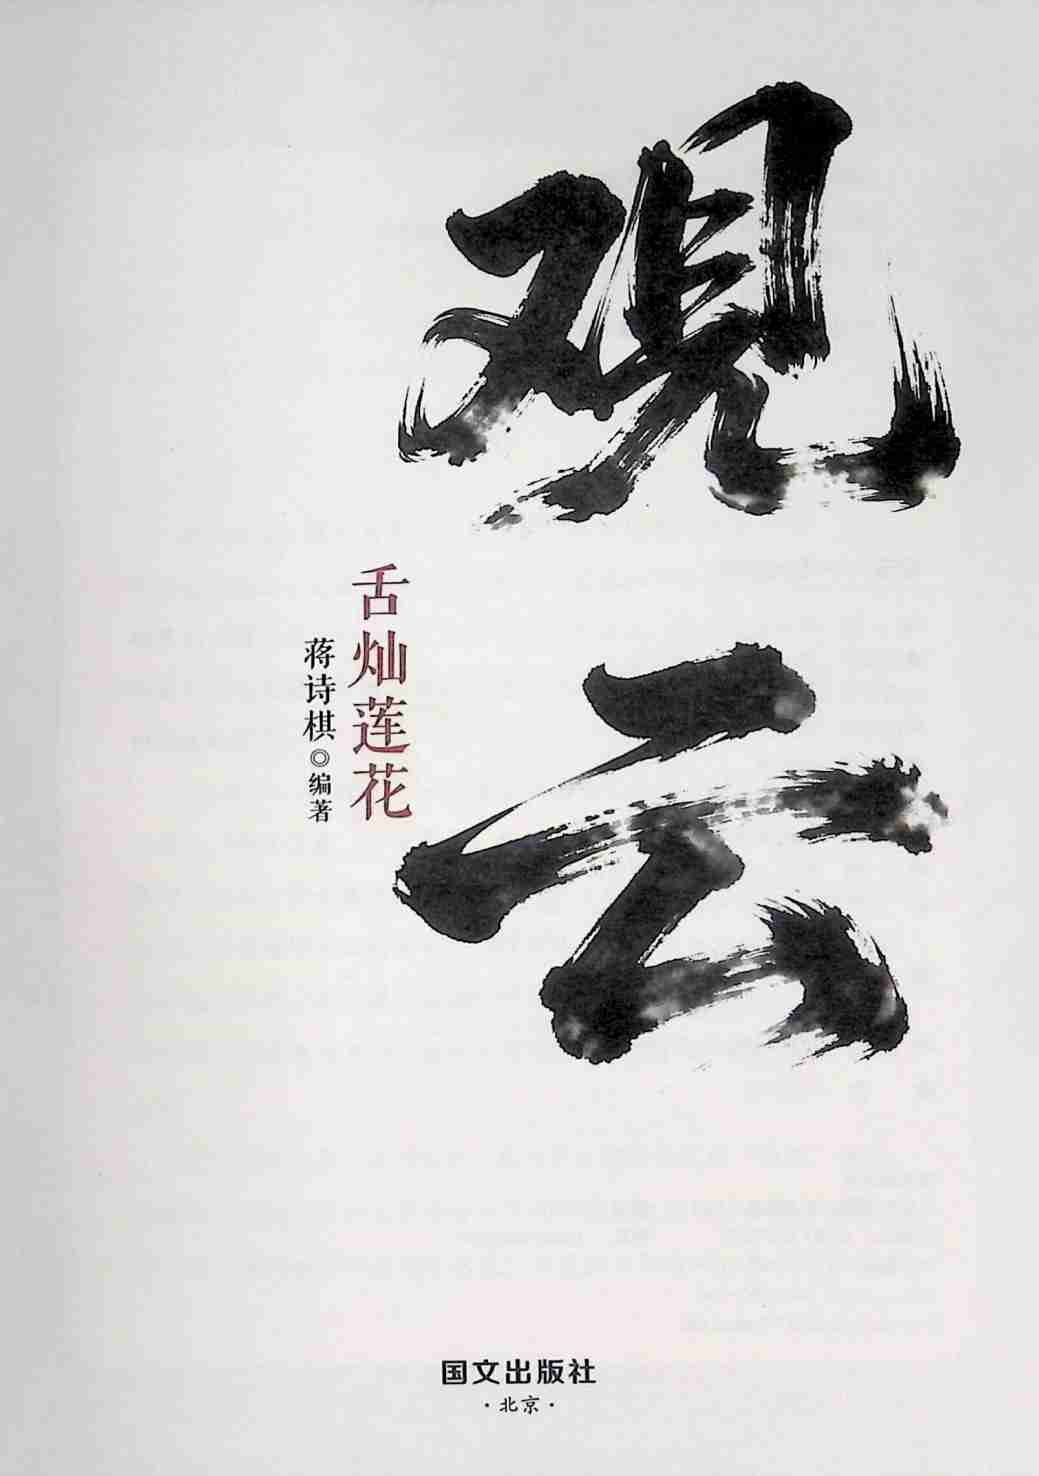 观云
舌灿莲花
蒋诗棋◎编著
国文出版社
·北京·